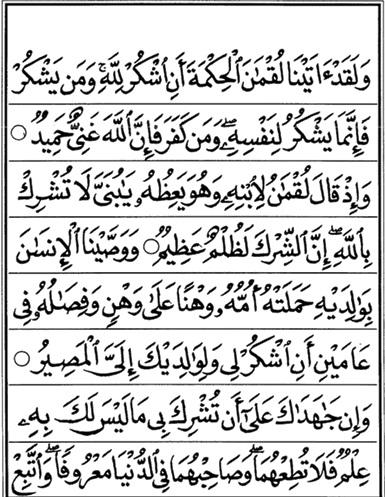 وَلَقَدْ ءَاتَيْنَا لُقْمَٰنَ ٱلْحِكْمَةَ أَنِ ٱشْكُرْ لِلَّهِ ۚ وَمَن يَشْكُرْ
فَإِنَّمَا يَشْكُرُ لِنَفْسِهِۦ ۖ وَمَن كَفَرَ فَإِنَّ ٱللَّهَ غَنِىٌّ حَمِيدٌ ۝
وَإِذْ قَالَ لُقْمَٰنُ لِٱبْنِهِۦ وَهُوَ يَعِظُهُۥ يَٰبُنَىَّ لَا تُشْرِكْ
بِٱللَّهِ ۖ إِنَّ ٱلشِّرْكَ لَظُلْمٌ عَظِيمٌ ۝ وَوَصَّيْنَا ٱلْإِنسَٰنَ
بِوَٰلِدَيْهِ حَمَلَتْهُ أُمُّهُۥ وَهْنًا عَلَىٰ وَهْنٍ وَفِصَٰلُهُۥ فِى
عَامَيْنِ أَنِ ٱشْكُرْ لِى وَلِوَٰلِدَيْكَ إِلَىَّ ٱلْمَصِيرُ ۝
وَإِن جَٰهَدَاكَ عَلَىٰٓ أَن تُشْرِكَ بِى مَا لَيْسَ لَكَ بِهِۦ
عِلْمٌ فَلَا تُطِعْهُمَا ۖ وَصَاحِبْهُمَا فِى ٱلدُّنْيَا مَعْرُوفًا ۖ وَٱتَّبِعْ